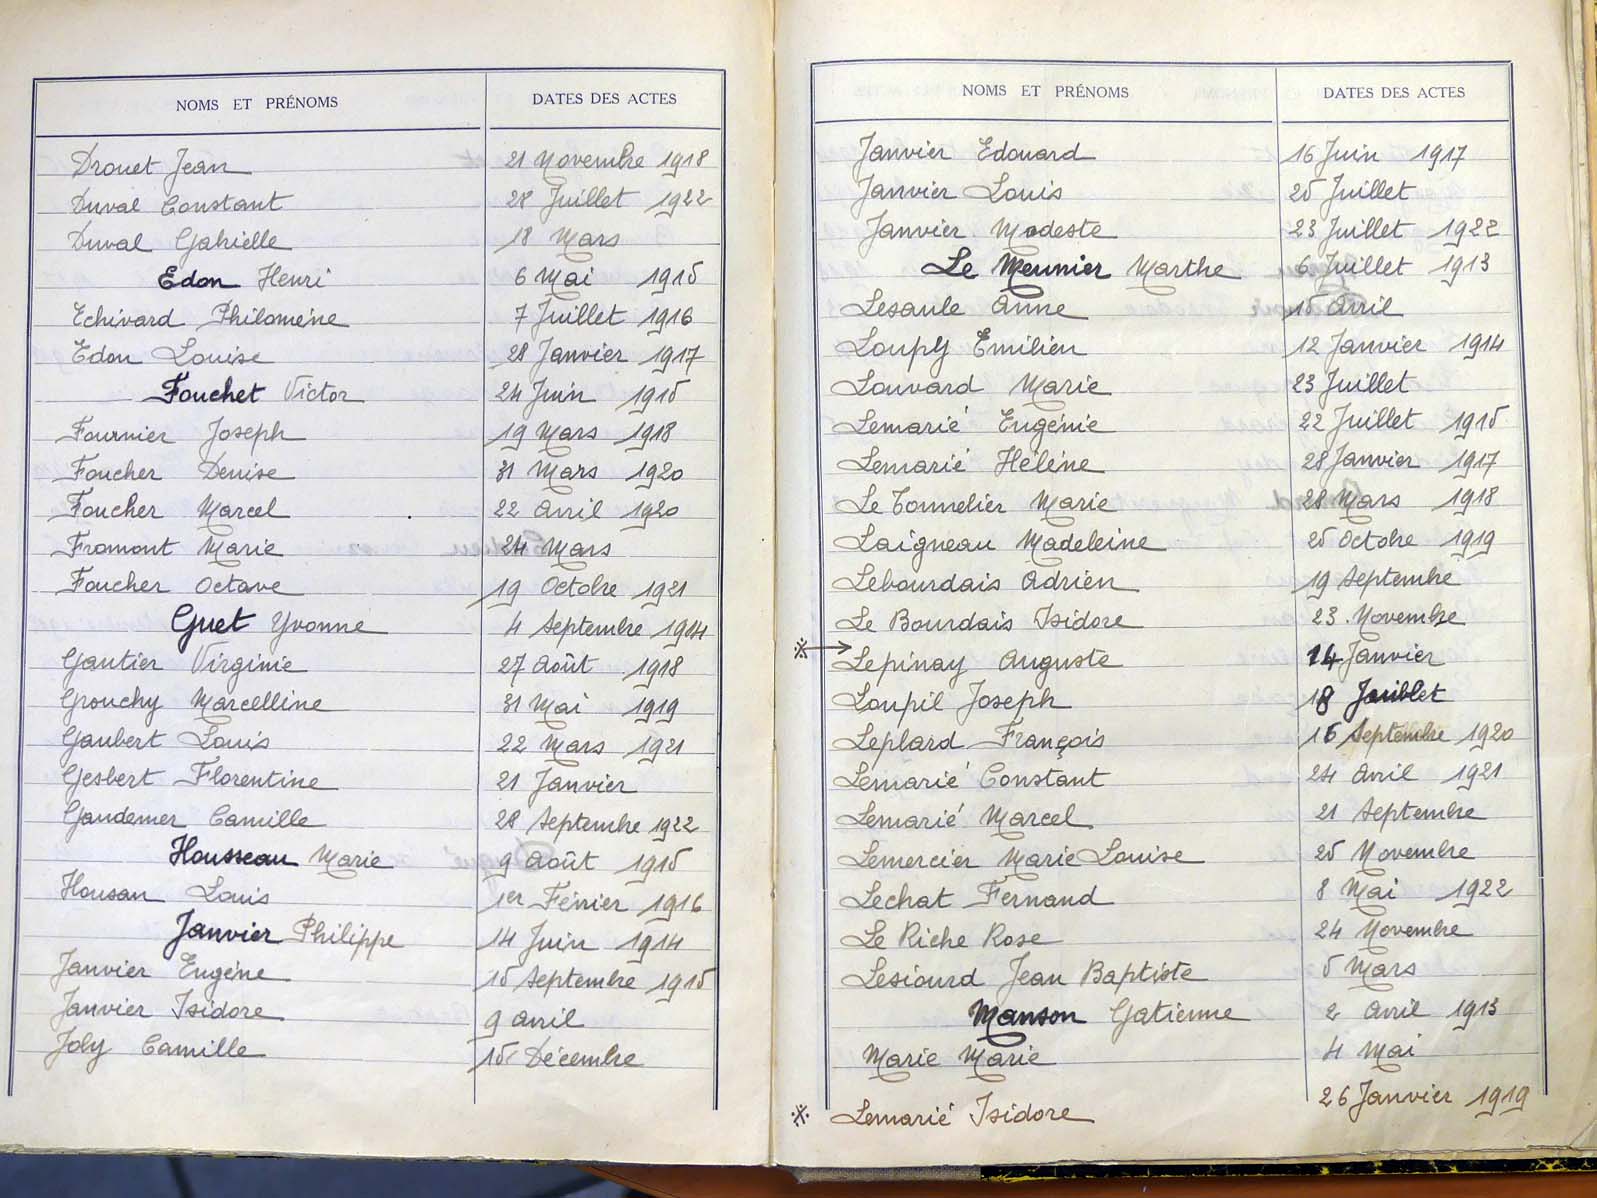 NOMS ET PRÉNOMS DATES DES ACTES
Drouet Jean 21 Novembre 1918
Duval Constant 28 Juillet 1922
Duval Gabrielle 18 Mars
Edon Henri 6 Mai 1915
Echivard Philomène 7 Juillet 1916
Edon Louise 28 Janvier 1917
Fouchet Victor 24 Juin 1915
Fournier Joseph 19 Mars 1918
Foucher Denise 31 Mars 1920
Foucher Marcel 22 Avril 1920
Fromont Marie 24 Mars
Foucher Octave 19 Octobre 1921
Guet Yvonne 4 Septembre 1904
Gautier Virginie 27 Août 1918
Grouchy Marcelline 31 Mai 1919
Gaubert Louis 22 Mars 1921
Gesbert Florentine 21 Janvier
Gandemer Camille 28 Septembre 1922
Housseau Marie 9 Août 1915
Housan Louis 1er Février 1916
Janvier Philippe 14 Juin 1914
Janvier Eugène 15 Septembre 1915
Janvier Isidore 9 Avril
Joly Camille 15 Décembre
NOMS ET PRÉNOMS DATES DES ACTES
Janvier Edouard 16 Juin 1917
Janvier Louis 25 Juillet
Janvier Modeste 23 Juillet 1922
Le Meunier Marthe 6 Juillet 1913
Lesaule Anne 15 Avril
Loupy Emilien 12 Janvier 1914
Louvard Marie 23 Juillet
Lemarié Eugénie 22 Juillet 1915
Lemarié Hélène 28 Janvier 1917
Le Tonnelier Marie 28 Mars 1918
Laigneau Madeleine 25 Octobre 1919
Lebourdais Adrien 19 Septembre
Le Bourdais Isidore 23 Novembre
※→ Lepinay Auguste 14 Janvier
Loupil Joseph 18 Juillet
Leplard François 16 Septembre 1920
Lemarié Constant 24 Avril 1921
Lemarié Marcel 21 Septembre
Lemercier Marie Louise 25 Novembre
Lechat Fernand 8 Mai 1922
Le Riche Rose 24 Novembre
Lesiourd Jean Baptiste 5 Mars
Manson Gatienne 2 Avril 1913
Marie Marie 4 Mai
※ Lemarié Isidore 26 Janvier 1919